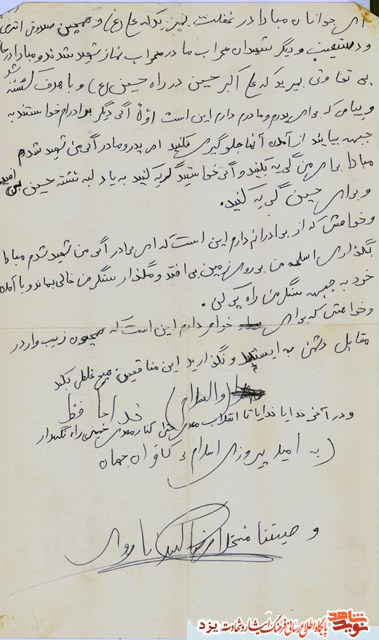 ای جوانان مبادا در غفلت بمیرید که علی (ع) و همچنین صدوقی اشرفی
و دستغیب و دیگر شهیدان محراب ما در محراب نماز شهید شدند و مبادا در
بی تفاوتی بمیرید که علی اکبر حسین در راه حسین (ع) و با هدف کشته شد
و پیامی که برای پدرم و مادرم دارم این است اولاً اگر دیگر برادرانم خواستند به
جبهه بیایند از آمدن آنها جلوگیری نکنید ای پدر و مادر اگر من شهید شدم
مبادا برای من گریه بکنید و اگر خواستید گریه کنید به یاد لب تشنه حسین
و برای حسین گریه کنید.
و خواهش که از برادرانم دارم این است که ای برادر اگر من شهید شدم مبادا
بگذاری اسلحه من بر روی زمین بی افتد و مگذار سنگر من خالی بماند و با آمدن
خود به جبهه سنگر من را پر کنی.
و خواهش که برای خواهرم دارم این است که همچون زینب وار در
مقابل دشمن به ایستد و نگذارید این منافقین هیچ غلطی بکند
(والسلام) خداحافظ
و در آخر خدایا خدایا تا انقلاب مهدی حتی کنار مهدی خمینی را نگهدار
(به امید پیروزی اسلام بر کافران جهان
وصیتنامه
پایگاه اطلاع رسانی فرهنگ ایثار و شهادت یزد
نوید شاهد